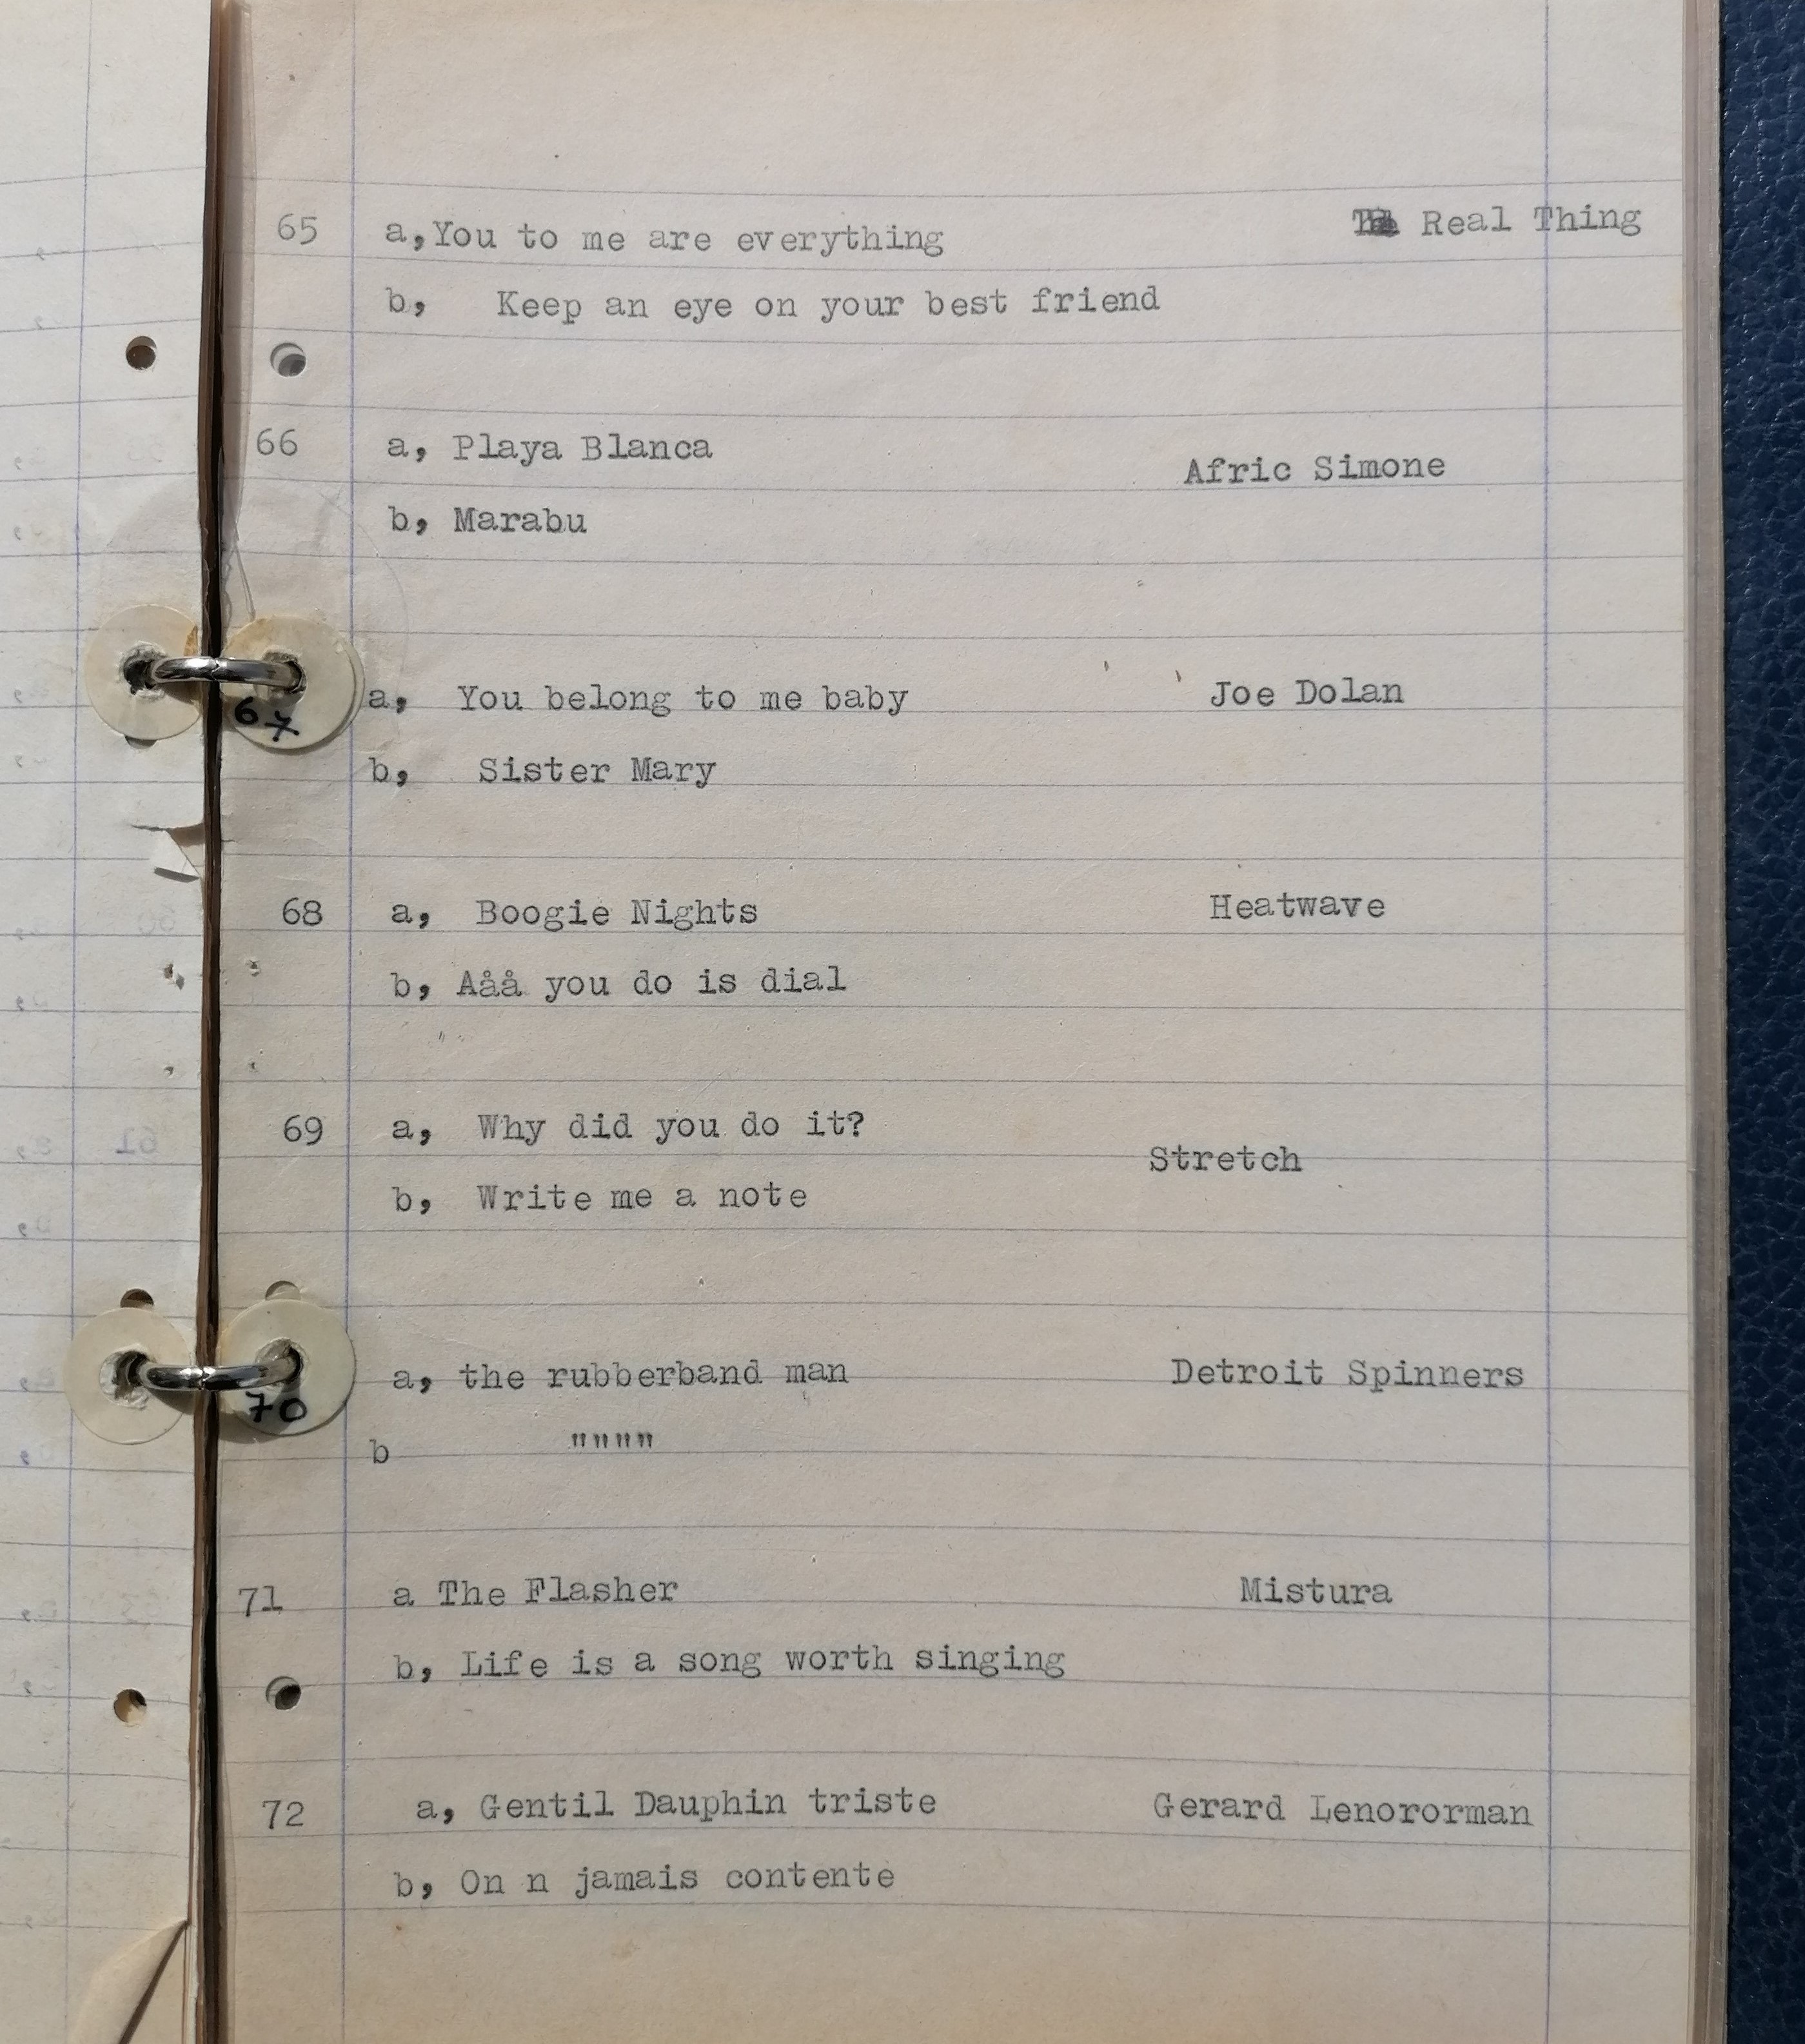 65 a,You to me are everything The Real Thing
b, Keep an eye on your best friend
66 a, Playa Blanca
Afric Simone
b, Marabu
67 a, You belong to me baby Joe Dolan
b, Sister Mary
68 a, Boogie Nights Heatwave
b, Aåå you do is dial
69 a, Why did you do it?
Stretch
b, Write me a note
70 a, the rubberband man Detroit Spinners
b """"
71 a The Flasher Mistura
b, Life is a song worth singing
72 a, Gentil Dauphin triste Gerard Lenororman
b, On n jamais contente